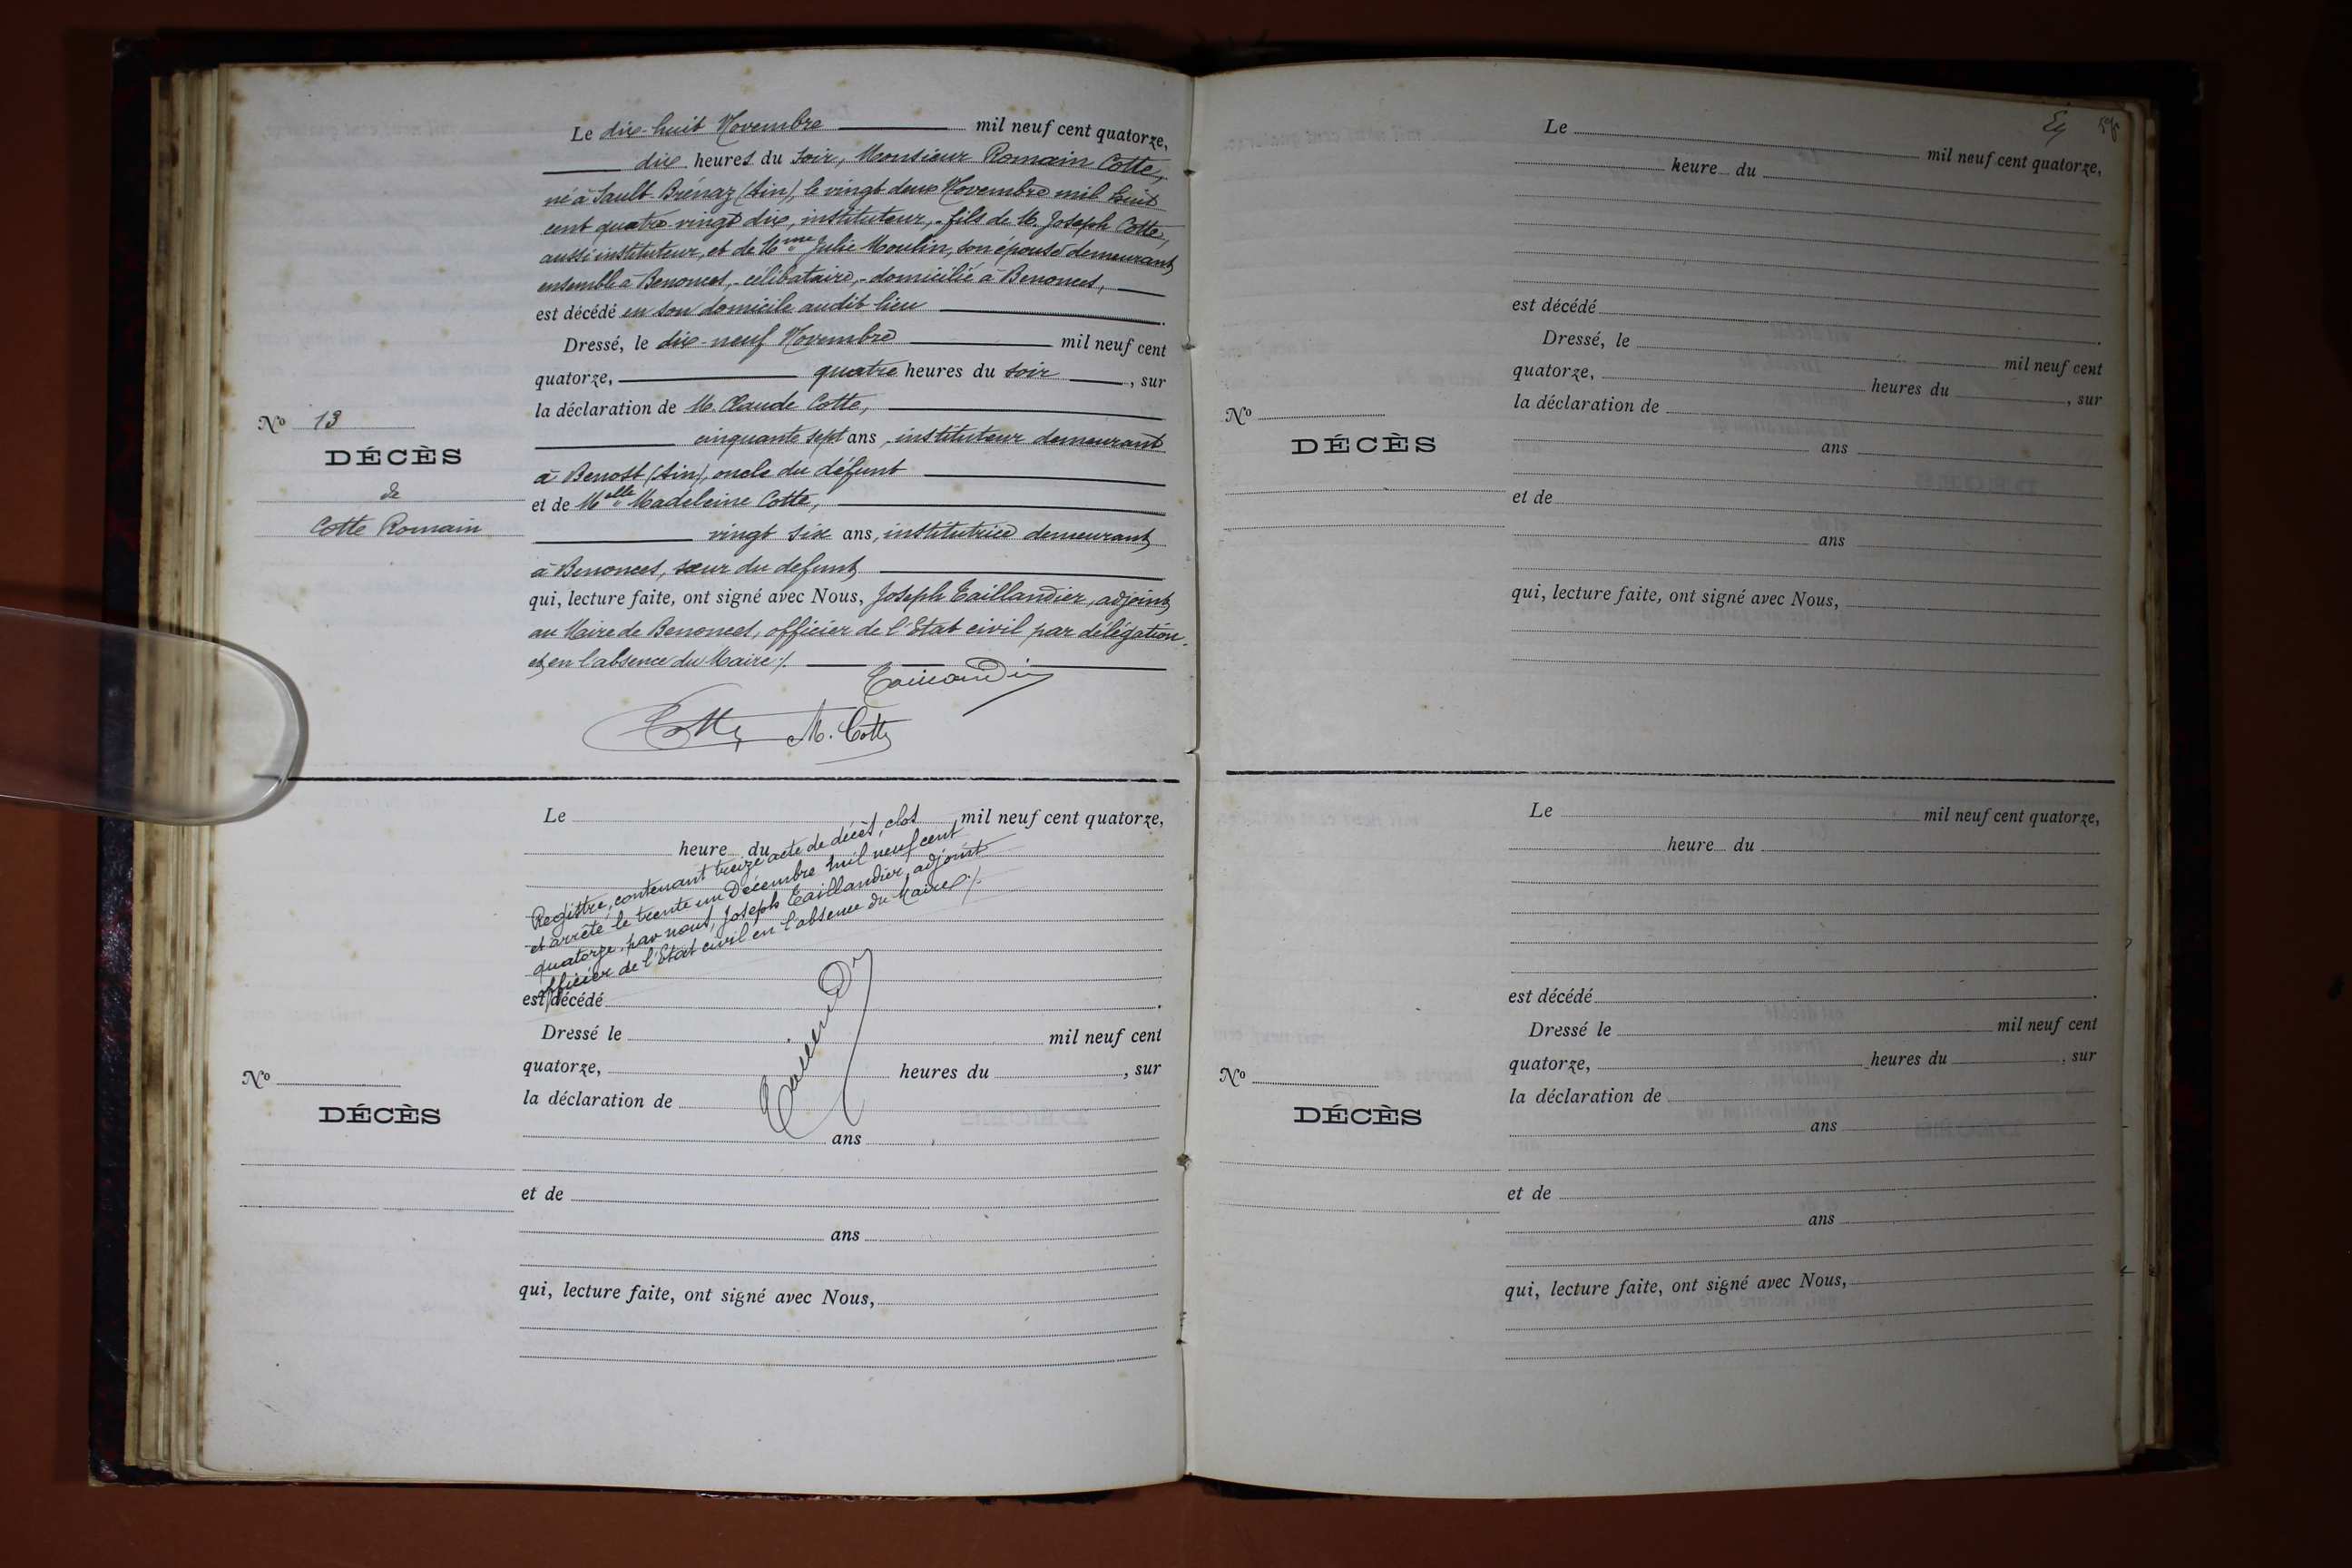 Le dix-huit Novembre mil neuf cent quatorze,
dix heures du soir, Monsieur Romain Cotte,
né à Sault-Brénaz (Ain), le vingt deux Novembre mil huit
cent quatre vingt dix, instituteur, - fils de M. Joseph Cotte,
aussi instituteur, et de Mme Julie Moulin, son épouse demeurant
ensemble à Benonces, - célibataire, - domicilié à Benonces,
est décédé en son domicile audit lieu .
Dressé, le dix-neuf Novembre mil neuf cent
quatorze, quatre heures du soir , sur
la déclaration de M. Claude Cotte,
cinquante sept ans, instituteur demeurant
à Benost (Ain), oncle du défunt
et de Melle Madeleine Cotte,
vingt six ans, institutrice demeurant
à Benonces, sœur du defunt
qui, lecture faite, ont signé avec Nous, Joseph Taillandier, adjoint
au Maire de Benonces, officier de l'Etat civil par délégation
et en l'absence du Maire ./.
Nº 13
DÉCÈS
de
Cotte Romain
Cotte M. Cotte
Le mil neuf cent quatorze,
heure du
Registre, contenant treize acte de décès, clos
et arrêté le trente un Décembre mil neuf cent
quatorze, par nous, Joseph Taillandier, adjoint
officier de l'Etat civil en l'absence du Maire ./.
est décédé .
Dressé le mil neuf cent
quatorze, heures du , sur
la déclaration de
ans
et de
ans
qui, lecture faite, ont signé avec Nous,
Nº
DÉCÈS
Le mil neuf cent quatorze,
heure du
est décédé .
Dressé, le mil neuf cent
quatorze, heures du , sur
la déclaration de
ans
et de
ans
qui, lecture faite, ont signé avec Nous,
Nº
DÉCÈS
Le mil neuf cent quatorze,
heure du
est décédé .
Dressé le mil neuf cent
quatorze, heures du , sur
la déclaration de
ans
et de
ans
qui, lecture faite, ont signé avec Nous,
Nº
DÉCÈS